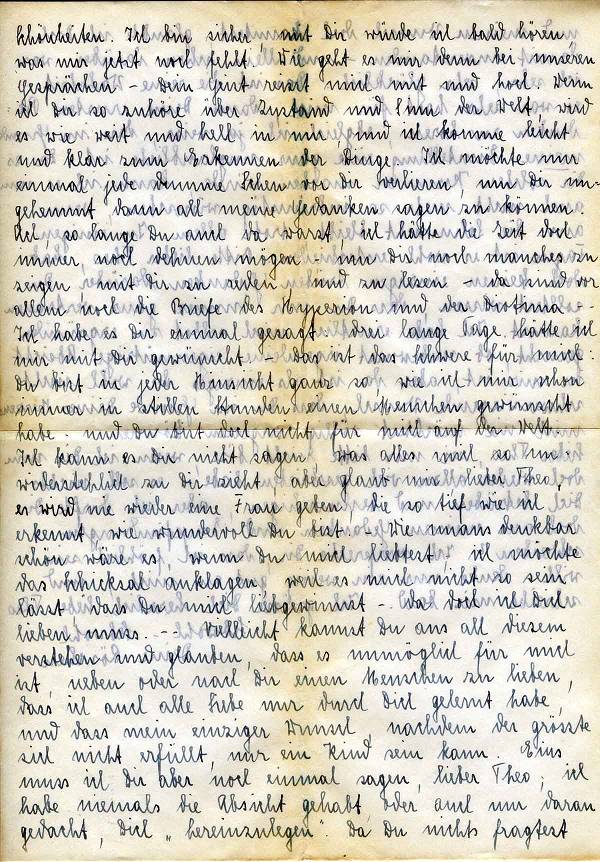 Schönheiten. Ich bin sicher, mit Dir würde ich bald hören,
was mir jetzt noch fehlt. Wie geht es mir denn bei unseren
Gesprächen – dein Geist reisst mich mit und hoch. Wenn
ich Dir so zuhöre über Zustand und Sinn der Welt, wird
es wie weit und hell in mir und ich komme leicht
und klar zum Erkennen der Dinge. Ich möchte nur
einmal jede dumme Scheu vor Dir verlieren, um Dir un-
gehemmt dann all meine Gedanken sagen zu können.
Ach, solange Du auch da warst, ich hätte die Zeit doch
immer noch dehnen mögen – um Dir noch manches zu
zeigen mit Dir zu reden und zu lesen – da sind vor
allem noch die Briefe des Hyperion und der Diotima –
Ich habe es Dir einmal gesagt: drei lange Tage hätte ich
mir mit Dir gewünscht – das ist das Schwere für mich:
Du bist in jeder Hinsicht ganz so wie ich mir schon
immer in stillen Stunden einen Menschen gewünscht
habe. und Du bist doch nicht für mich auf der Welt.
Ich kann es Dir nicht sagen, was alles mich so un-
widerstehlich zu Dir zieht, aber glaub mir lieber Theo,
es wird nie wieder eine Frau geben die so tief wie ich
erkennt wie wundervoll Du bist. Wie unausdenkbar
schön wäre es, wenn Du mich liebtest, ich möchte
das Schicksal anklagen weil es mich nicht so sein
lässt dass Du mich liebgewinnst – da doch ich Dich
lieben muss. –– Vielleicht kannst Du aus all diesem
verstehen und glauben, dass es unmöglich für mich
ist, neben oder nach Dir einen Menschen zu lieben,
dass ich auch alle Liebe nur durch Dich gelernt habe,
und dass mein einziger Wunsch, nachdem der grösste
sich nicht erfüllt, nur ein Kind sein kann. Eins
muss ich Dir aber noch einmal sagen, lieber Theo, ich
habe niemals die Absicht gehabt oder auch nur daran
gedacht, Dich „hereinzulegen“. Da Du nichts fragtest